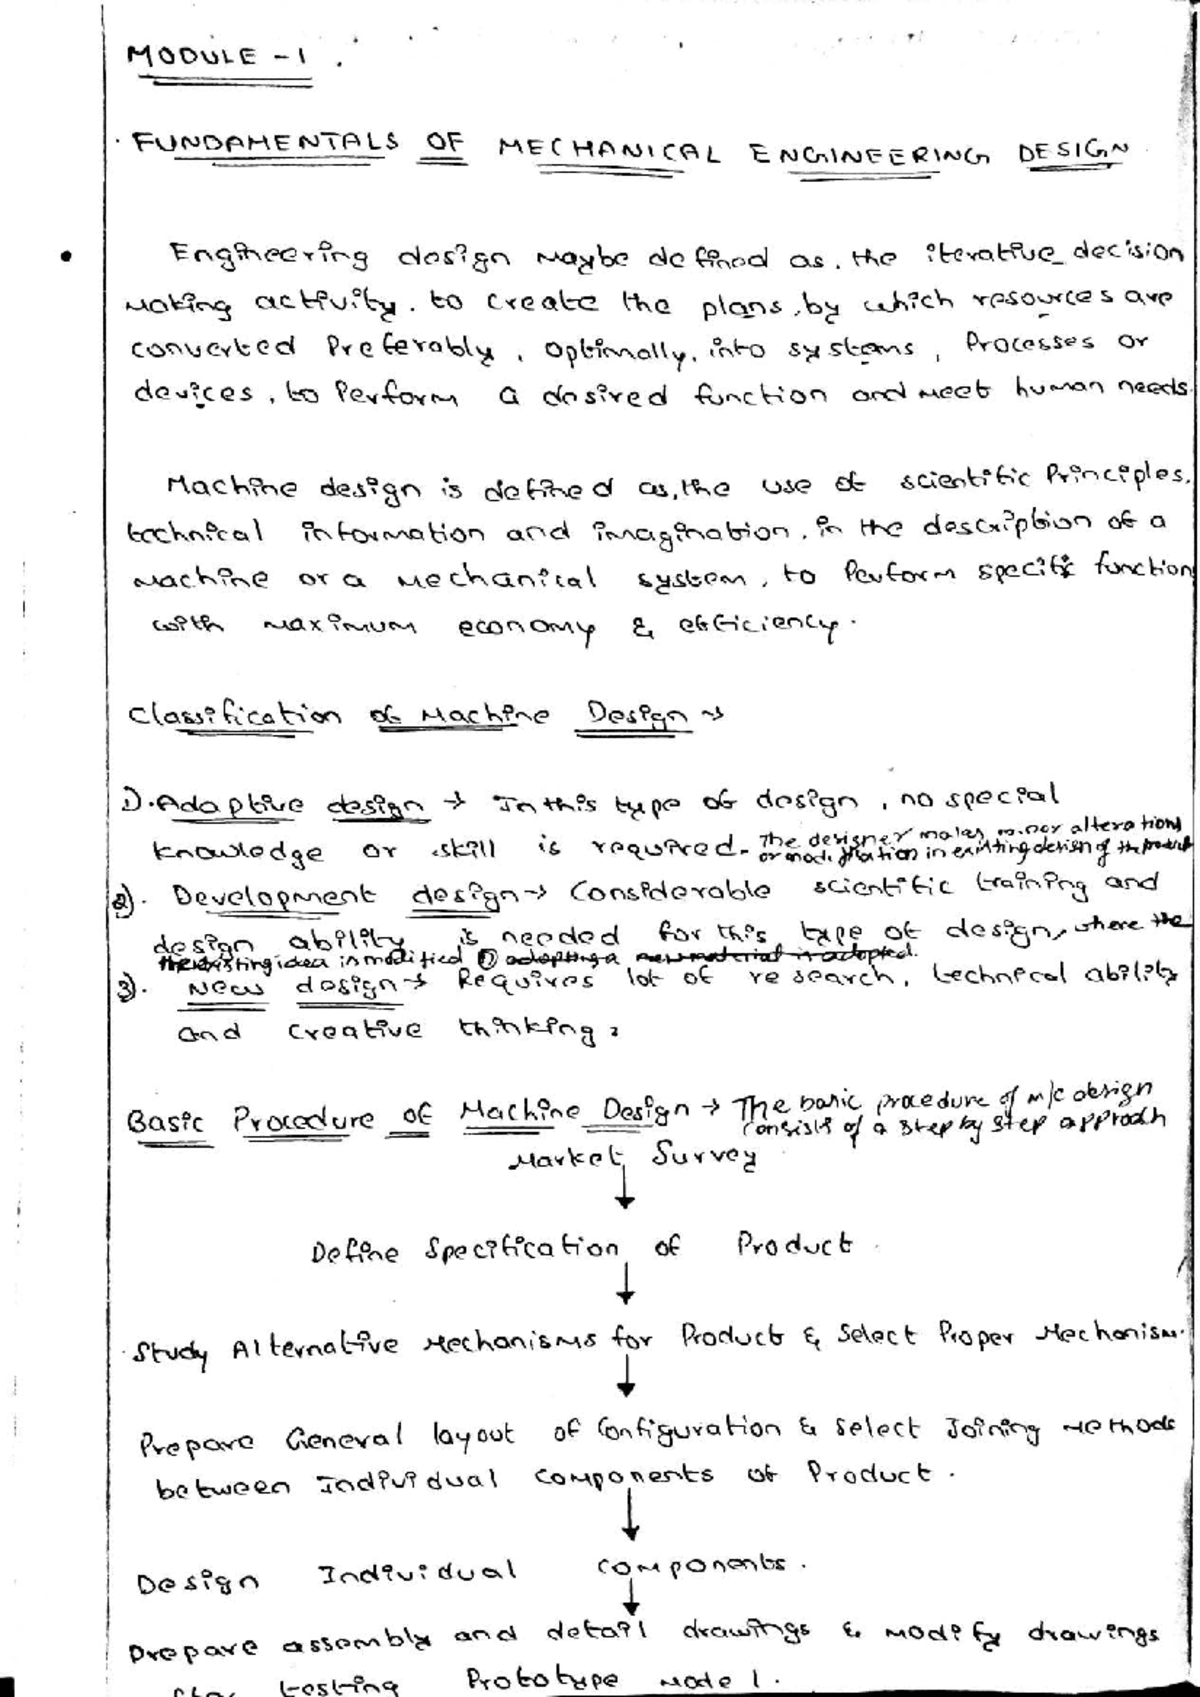 MODULE - 1.
FUNDAMENTALS OF MECHANICAL ENGINEERING DESIGN
Engineering design maybe defined as, the iterative decision
making activity, to create the plans, by which resources are
converted Preferably, optimally, into systems, Processes or
devices, to Perform a desired function and meet human needs.
Machine design is defined as, the use of scientific Principles,
technical information and imagination, in the description of a
machine or a mechanical system, to Perform specific function
with maximum economy & efficiency.
Classification of Machine Design →
1). Adaptive design → In this type of design, no special
knowledge or skill is required. The designer makes minor alterations
or modification in existing design of the product
2). Development design → Considerable scientific training and
design ability is needed for this type of design, where the
the existing idea is modified adopting a new material is adopted.
3). New design → Requires lot of research, technical ability
and creative thinking.
Basic Procedure of Machine Design → The basic procedure of m/c design
consists of a step by step approach
Market Survey
↓
Define Specification of Product.
↓
Study Alternative Mechanisms for Product & Select Proper Mechanism.
↓
Prepare General layout of Configuration & select Joining Methods
between Individual components of Product.
↓
Design Individual components.
↓
Prepare assembly and detail drawings & modify drawings
testing Prototype Model.